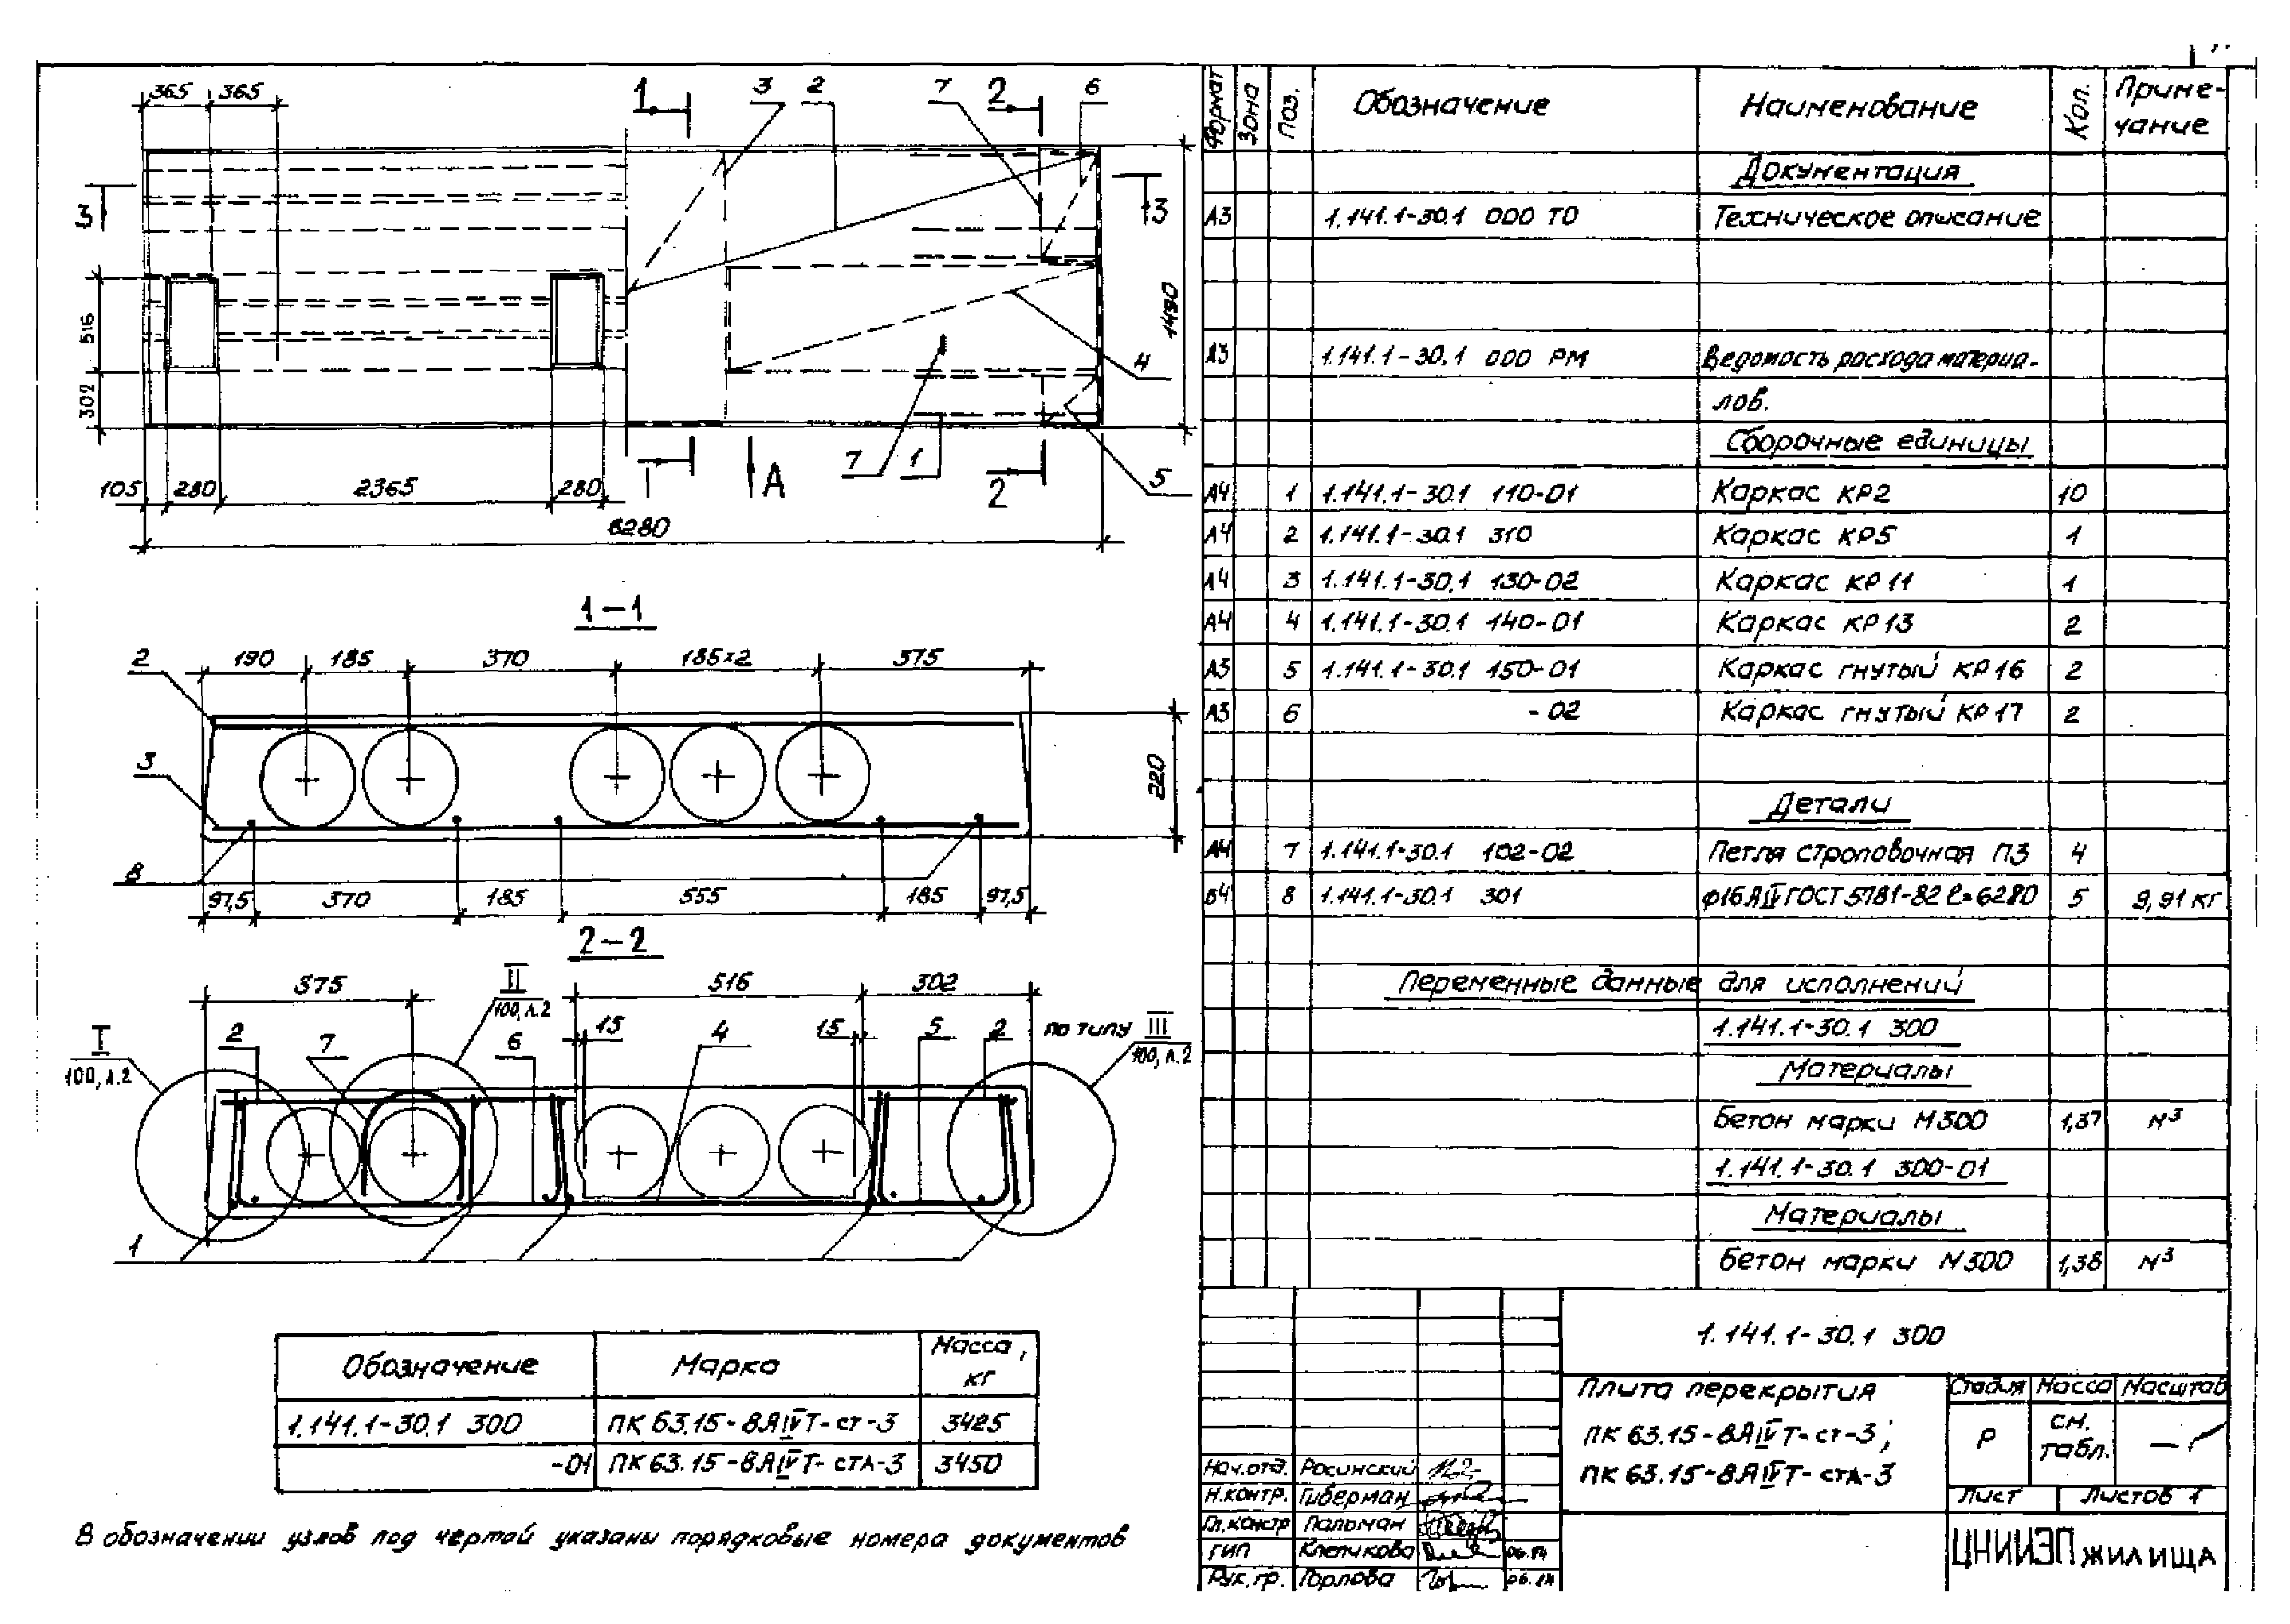 365 365
1 3 2 7 2 6
3 3
516
302
1490
4
7 1 5
1 А 2
105 280 2365 280
6280
1-1
2 190 185 370 185×2 575
3
220
8
97,5 370 185 555 185 97,5
2-2
375 II 516 302
100, л.2
I 2 7 6 15 4 15 5 2 по типу III
100, л.2 100, л.2
1
Обозначение Марка Масса, кг
1.141.1-30.1 300 ПК 63.15-8АIVТ-ст-3 3425
-01 ПК 63.15-8АIVТ-стА-3 3450
В обозначении узлов под чертой указаны порядковые номера документов
Формат Зона Поз. Обозначение Наименование Кол. Приме-
чание
Документация
А3 1.141.1-30.1 000 ТО Техническое описание
А3 1.141.1-30.1 000 РМ Ведомость расхода материа-
лов.
Сборочные единицы
А4 1 1.141.1-30.1 110-01 Каркас КР2 10
А4 2 1.141.1-30.1 310 Каркас КР5 1
А4 3 1.141.1-30.1 130-02 Каркас КР11 1
А4 4 1.141.1-30.1 140-01 Каркас КР13 2
А3 5 1.141.1-30.1 150-01 Каркас гнутый КР16 2
А3 6 -02 Каркас гнутый КР17 2
Детали
А4 7 1.141.1-30.1 102-02 Петля строповочная П3 4
Б4 8 1.141.1-30.1 301 ф16АIV ГОСТ 5781-82 ℓ=6280 5 9,91 кг
Переменные данные для исполнений
1.141.1-30.1 300
Материалы
Бетон марки М300 1,37 м³
1.141.1-30.1 300-01
Материалы
Бетон марки М300 1,38 м³
1.141.1-30.1 300
Плита перекрытия
ПК 63.15-8АIVТ-ст-3;
ПК 63.15-8АIVТ-стА-3
Стадия Масса Масштаб
Р см. табл. —
Лист Листов 1
ЦНИИЭП жилища
Нач.отд. Росинский
Н.контр. Гиберман
Гл.констр Пальман
ГИП Клепикова
Рук.гр. Горлова